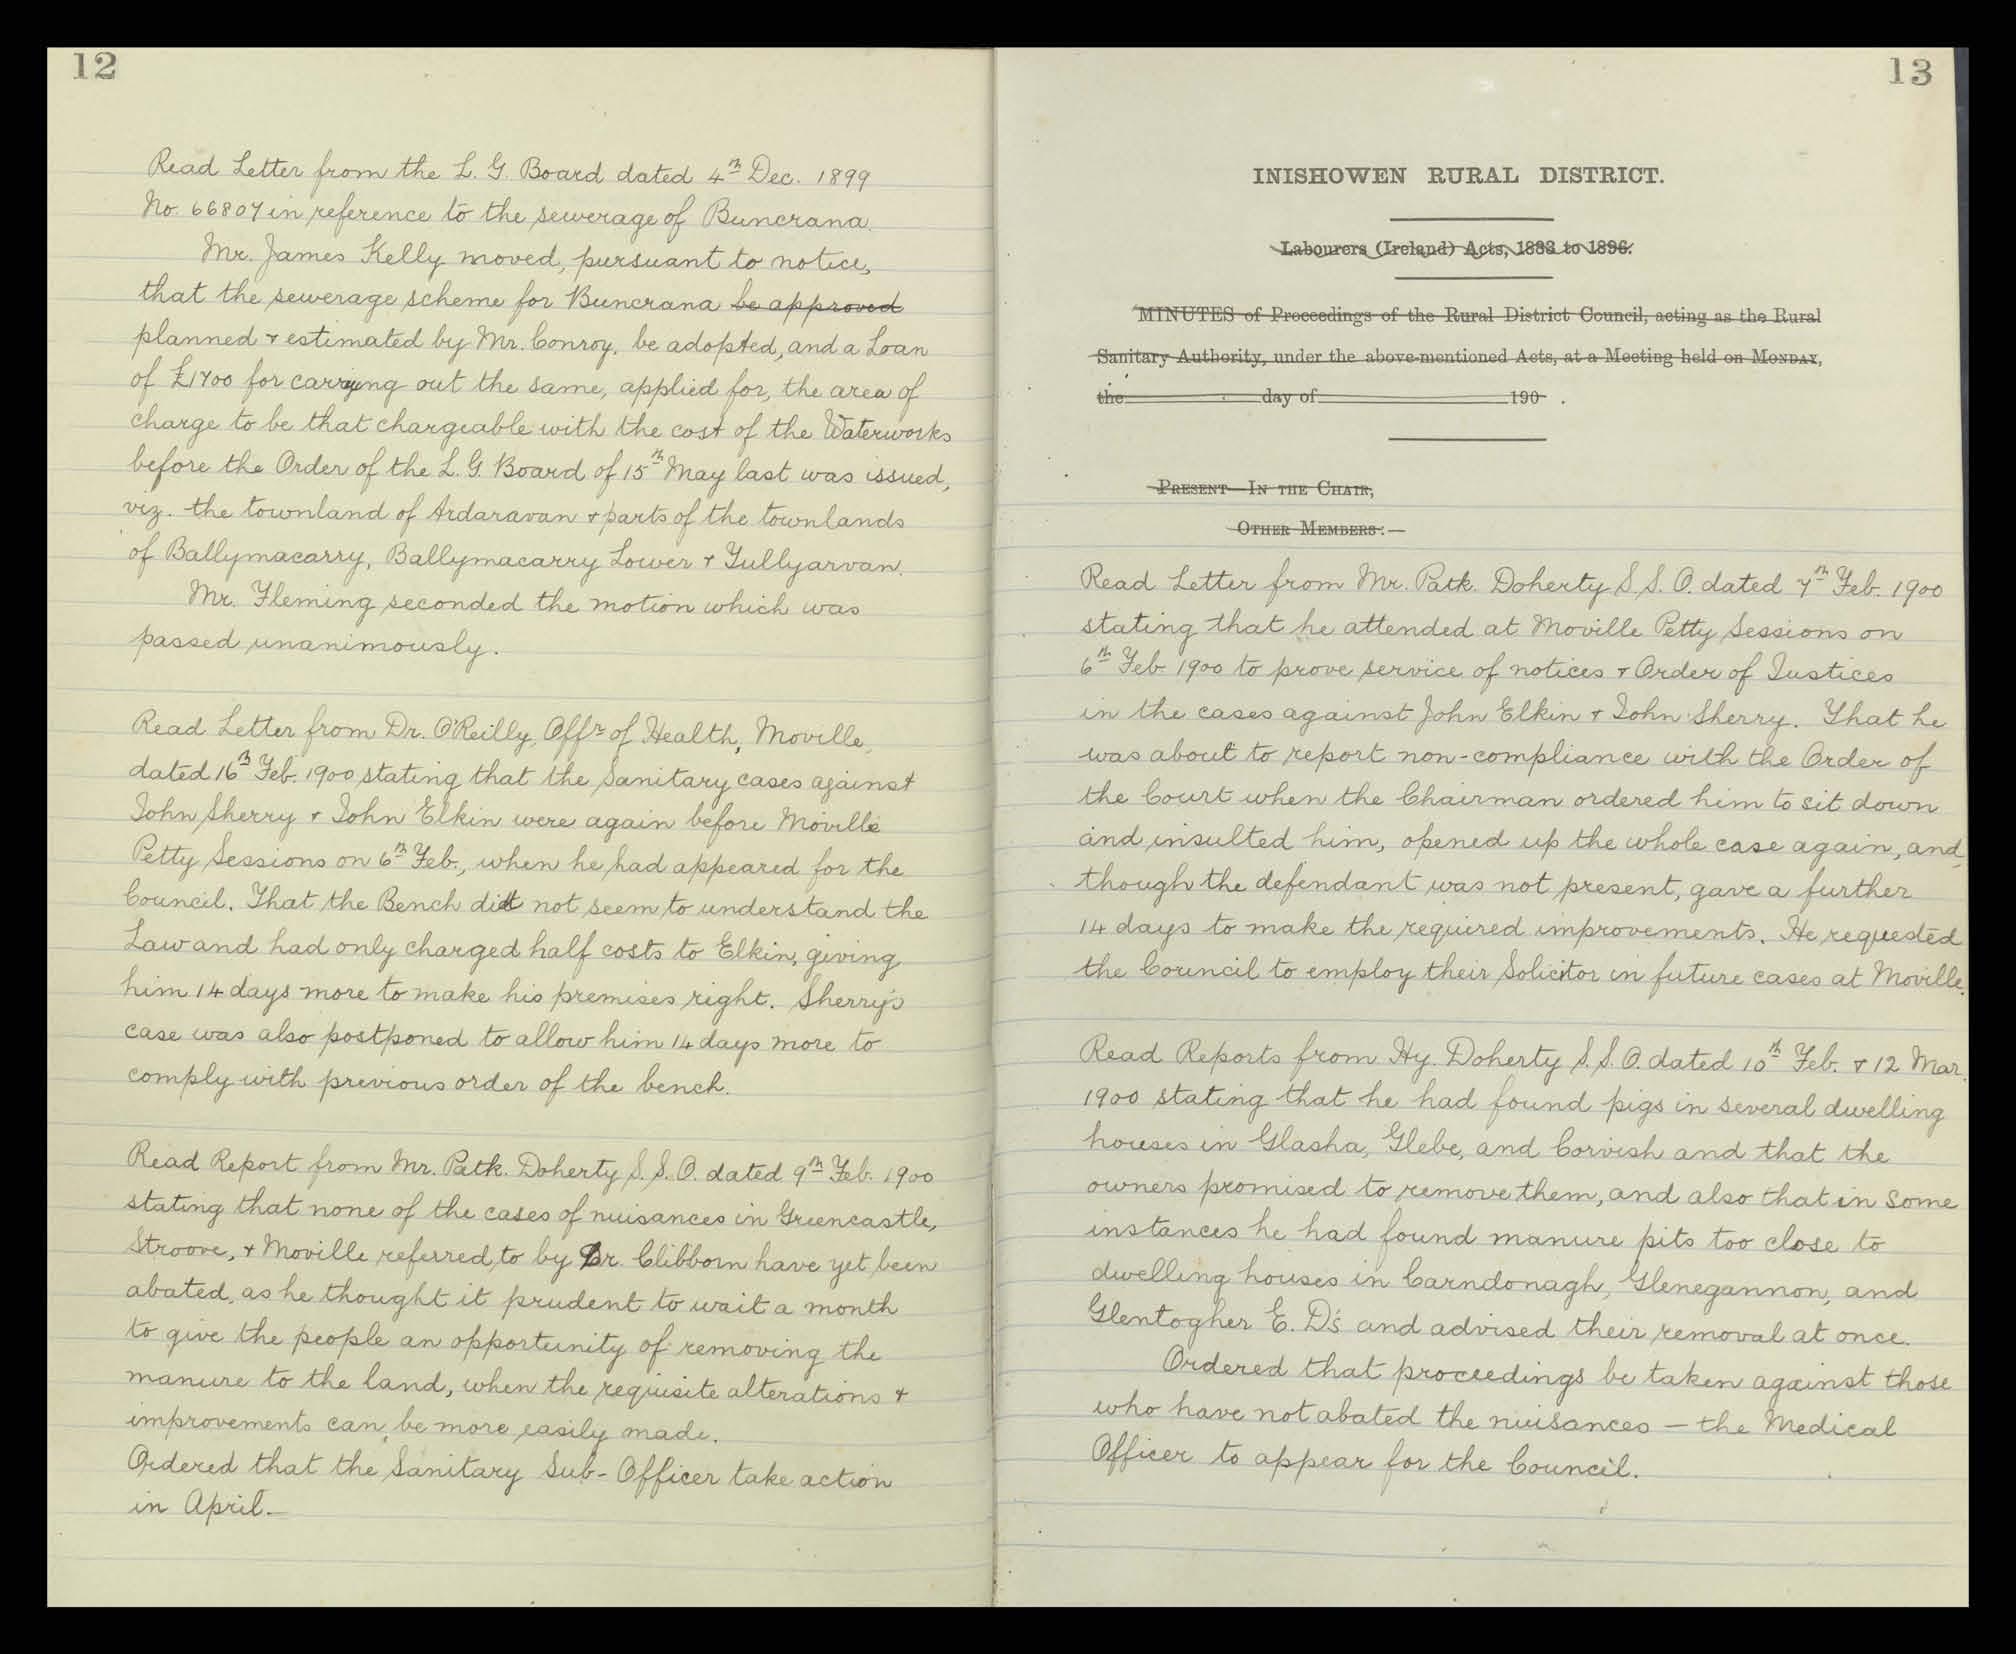 12
Read Letter from the L. G. Board dated 4th Dec. 1899
No. 66807 in reference to the sewerage of Buncrana.
Mr. James Kelly moved, pursuant to notice,
that the sewerage scheme for Buncrana be approved
planned & estimated by Mr. Conroy, be adopted, and a Loan
of £1700 for carrying out the same, applied for, the area of
charge to be that chargeable with the cost of the Waterworks
before the Order of the L. G. Board of 15th May last was issued,
viz. the townland of Ardaravan & parts of the townlands
of Ballymacarry, Ballymacarry Lower & Tullyarvan.
Mr. Fleming seconded the motion which was
passed unanimously.
Read Letter from Dr. O'Reilly, Offr of Health, Moville,
dated 16th Feb. 1900 stating that the Sanitary cases against
John Sherry & John Elkin were again before Moville
Petty Sessions on 6th Feb., when he had appeared for the
Council. That the Bench did not seem to understand the
Law and had only charged half costs to Elkin, giving
him 14 days more to make his premises right. Sherry's
case was also postponed to allow him 14 days more to
comply with previous order of the bench.
Read Report from Mr. Patk. Doherty S. S. O. dated 9th Feb. 1900
stating that none of the cases of nuisances in Greencastle,
Stroove, & Moville referred to by Dr. Clibborn have yet been
abated, as he thought it prudent to wait a month
to give the people an opportunity of removing the
manure to the land, when the requisite alterations &
improvements can be more easily made.
Ordered that the Sanitary Sub-Officer take action
in April.—
13
INISHOWEN RURAL DISTRICT.
Labourers (Ireland) Acts, 1883 to 1896.
MINUTES of Proceedings of the Rural District Council, acting as the Rural
Sanitary Authority, under the above-mentioned Acts, at a Meeting held on MONDAY,
the day of 190 .
PRESENT—IN THE CHAIR,
OTHER MEMBERS:—
Read Letter from Mr. Patk. Doherty S. S. O. dated 7th Feb. 1900
stating that he attended at Moville Petty Sessions on
6th Feb. 1900 to prove service of notices & Order of Justices
in the cases against John Elkin & John Sherry. That he
was about to report non-compliance with the Order of
the Court when the Chairman ordered him to sit down
and insulted him, opened up the whole case again, and,
though the defendant was not present, gave a further
14 days to make the required improvements. He requested
the Council to employ their Solicitor in future cases at Moville.
Read Reports from Hy. Doherty S. S. O. dated 10th Feb. & 12 Mar.
1900 stating that he had found pigs in several dwelling
houses in Glasha, Glebe, and Corvish and that the
owners promised to remove them, and also that in some
instances he had found manure pits too close to
dwelling houses in Carndonagh, Glenegannon, and
Glentogher E. D's and advised their removal at once.
Ordered that proceedings be taken against those
who have not abated the nuisances — the Medical
Officer to appear for the Council.